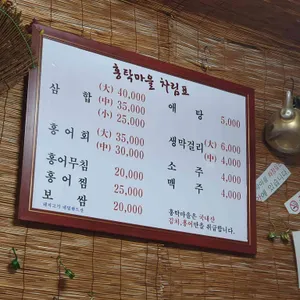 홍탁마을 차림표
삼 합 (大) 40,000
(中) 35,000
(小) 25,000
홍어회 (大) 35,000
(中) 30,000
홍어무침 20,000
홍어찜 25,000
보 쌈 20,000
애 탕 5,000
생막걸리 (大) 6,000
(中) 4,000
소 주 4,000
맥 주 4,000
홍탁마을은 국내산
김치,홍어만을 취급합니다.